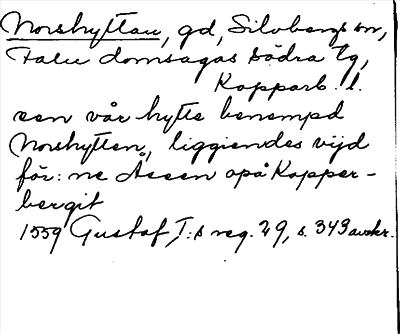 Norshyttan, gd, Silvbergs sn,
Falu domsagas södra tg,
Kopparb. l.
een vår hytte benempd
Norshytten, liggiendes vijd
för:ne Åseen opå Kopper-
bergit
1559 Gustaf I:s reg. 29, s. 349 avskr.